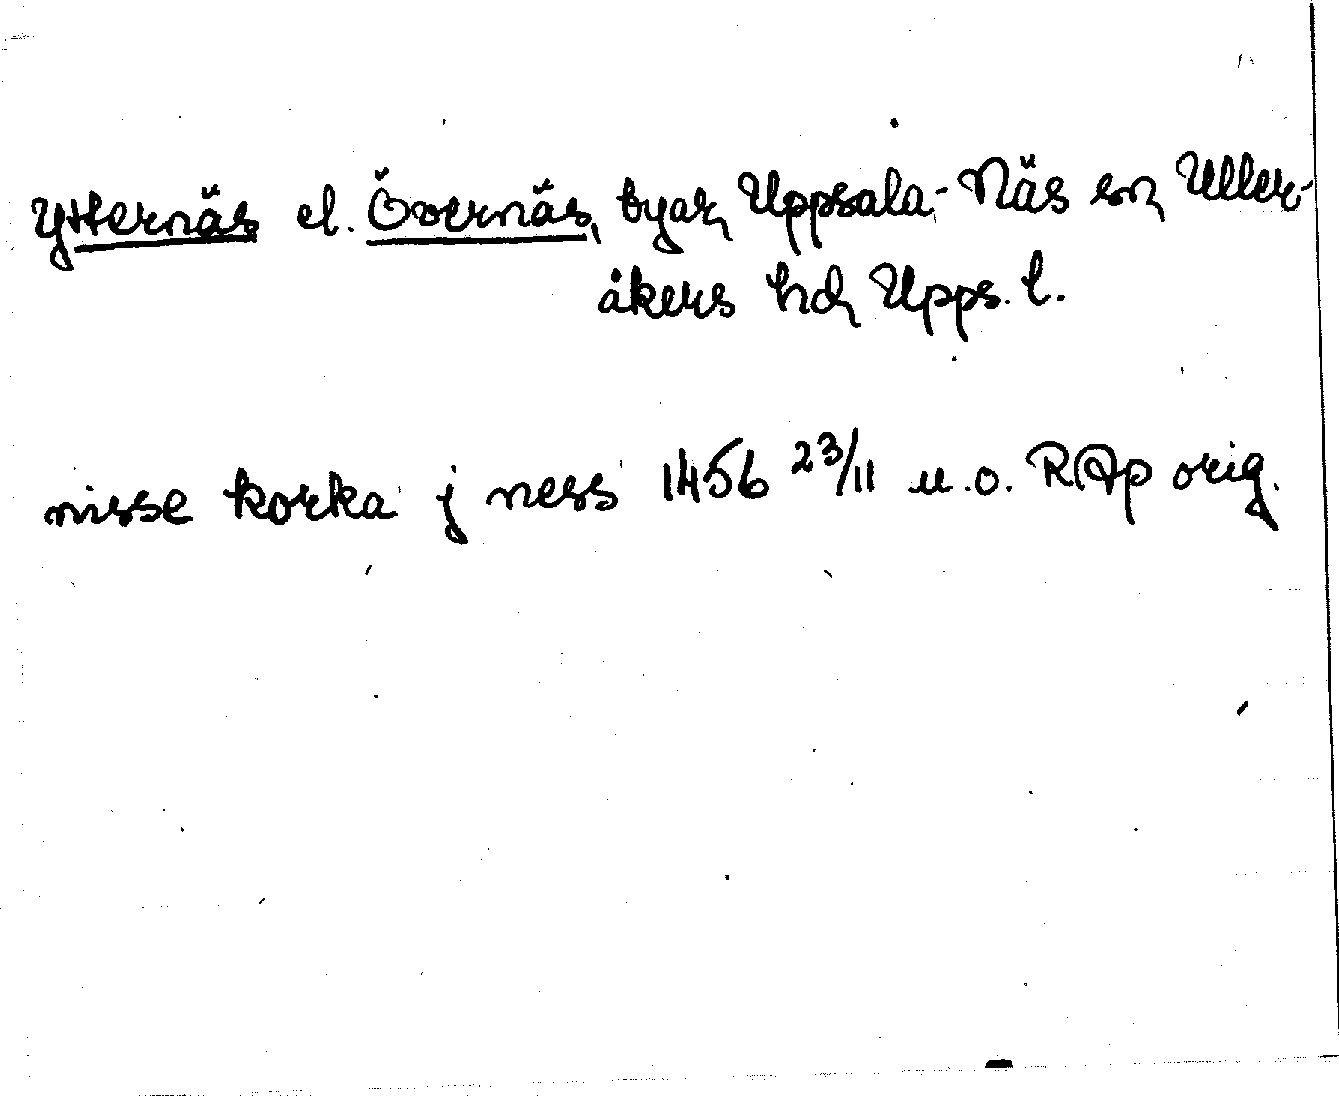 Ytternäs el. Övernäs, byar, Uppsala-Näs sn, Uller-
åkers hd, Upps. l.
nisse korka j ness 1456 23/11 u.o. RAp orig.